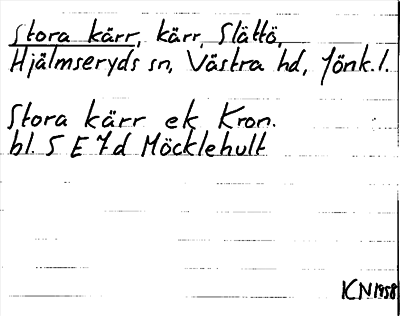 Stora kärr, kärr, Slättö,
Hjälmseryds sn, Västra hd, Jönk.l.
Stora kärr ek Kron.
bl. 5 E 7d Möcklehult
KN 1958